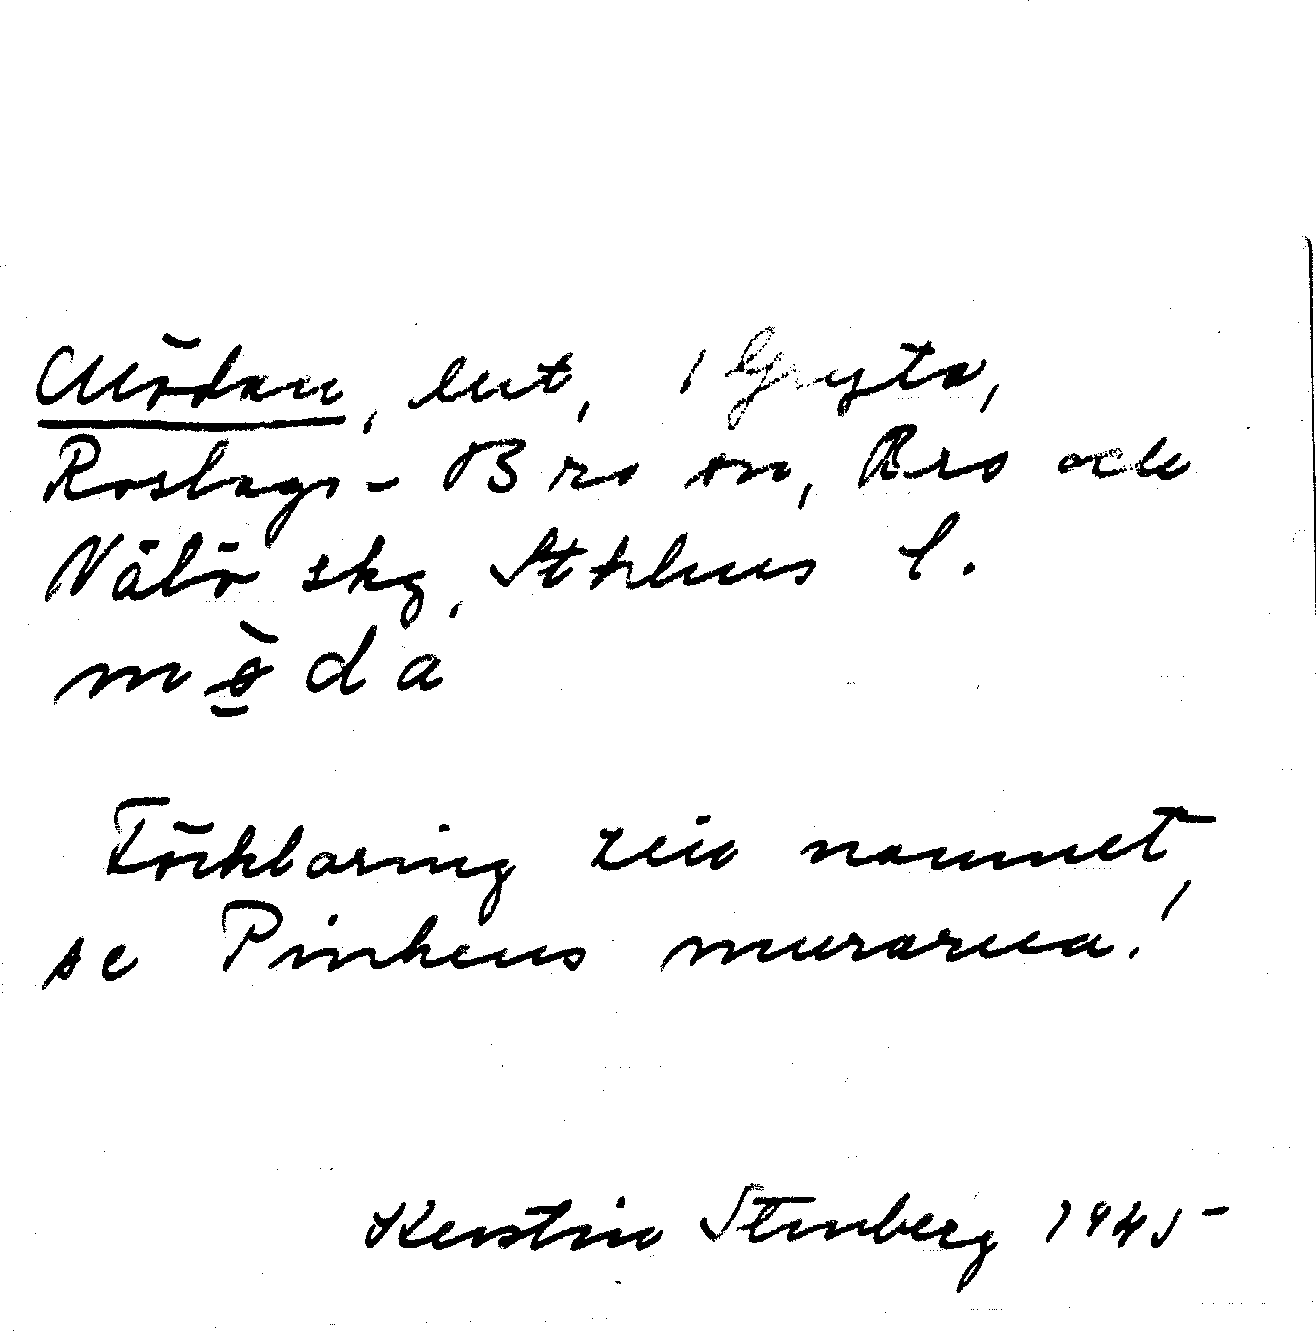 Mödan, lut, 1 Gryta,
Roslags-Bro sn, Bro och
Vätö skg, Sthlms l.
mö̀da
Förklaring till namnet,
se Pinkens murarna.
Kerstin Stenberg 1945